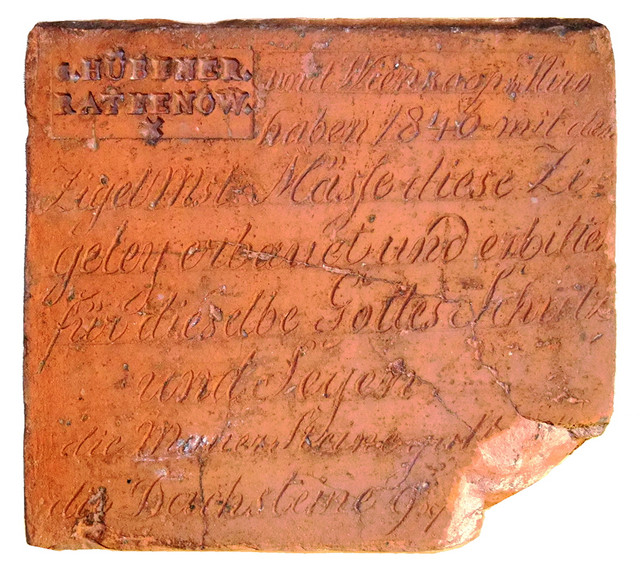 G. HÜBENER.
RATHENOW.
und
haben 1840 mit dem
Zigel Mst. Mässe diese Zi-
geley erbauet und erbitten
für dieselbe Gottes Schutz
und Seyen
die Mauer Steine
der Dachsteine